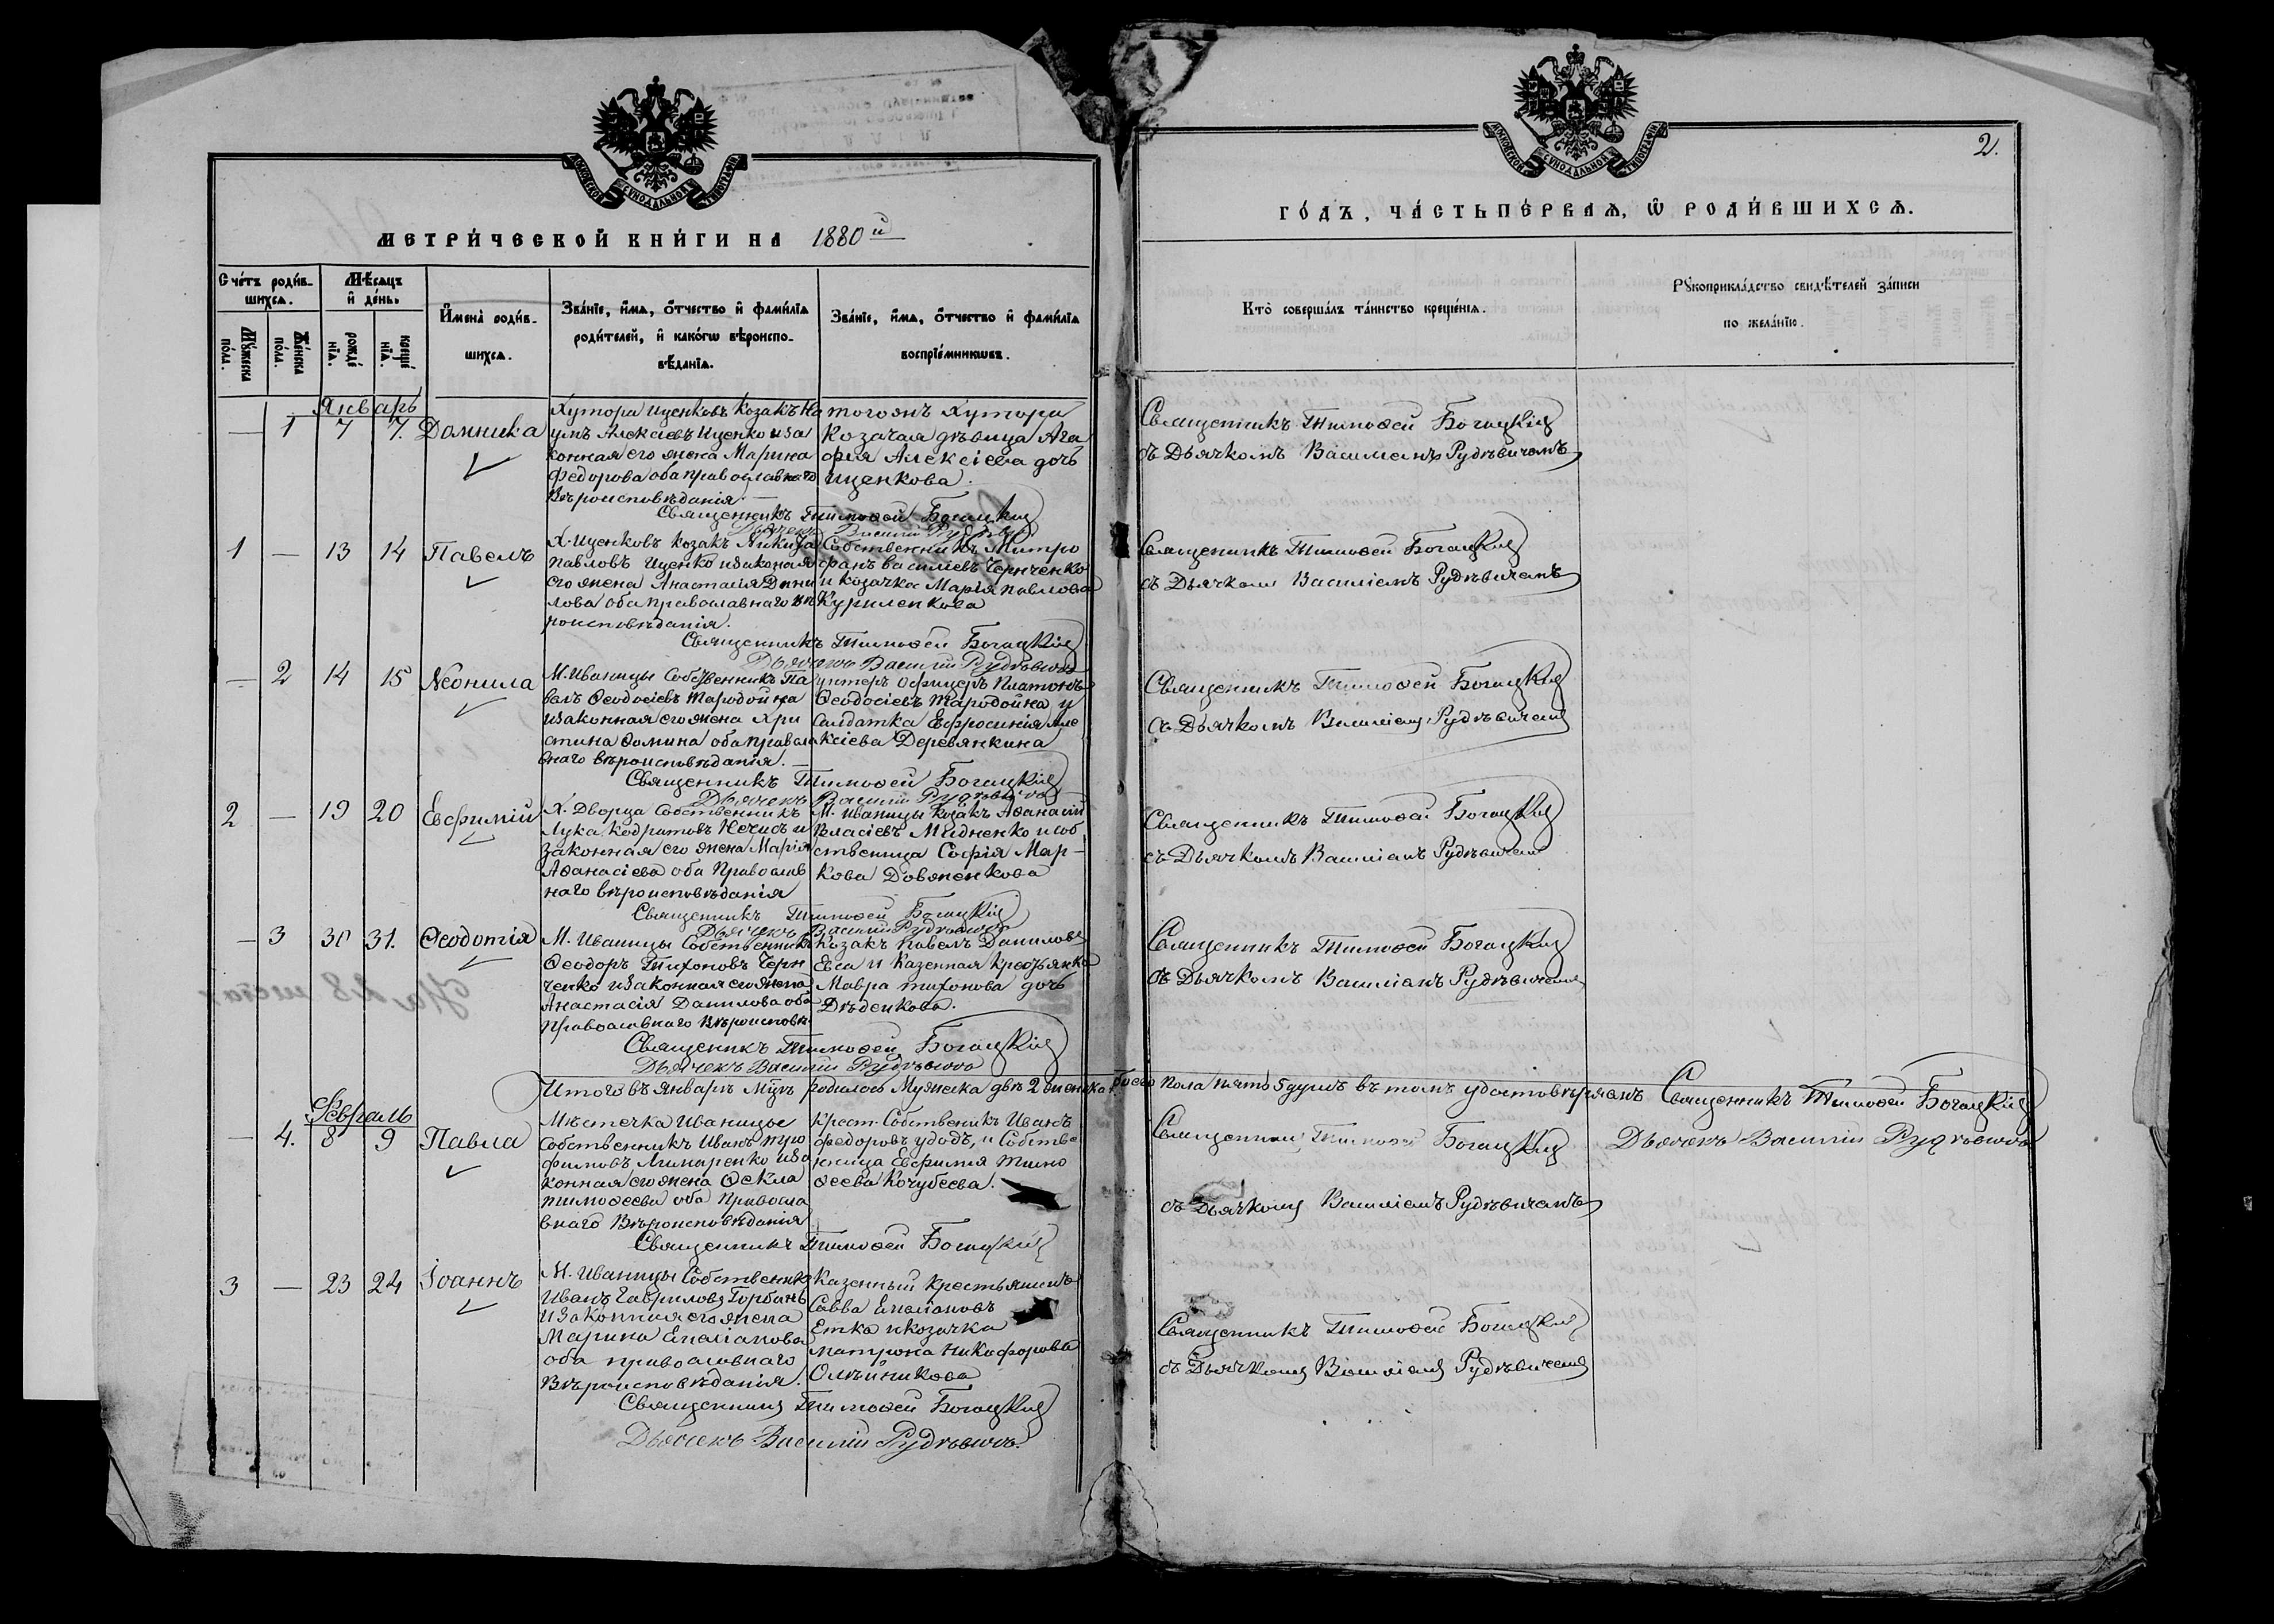 МОСКОВСКОЙ СУНОДАЛЬНОЙ ТИПОГРАФІИ
МЕТРИ́ЧЕСКОЙ КНИ́ГИ НА 1880 й
Сче́тъ роди́в-
шихсѧ.
Мѣ́сѧцъ
и҆ де́нь.
Му́жеска по́ла.
Же́нска по́ла.
рожде́нїѧ.
креще́нїѧ.
И҆мена̀ роди́в-
шихсѧ.
Зва́нїе, и҆́мѧ, ѻ҆́тчество и҆ фамѝлїѧ
роди́телей, и҆ како́гѡ вѣроиспо-
вѣ́данїѧ.
Зва́нїе, и҆́мѧ, ѻ҆́тчество и҆ фамѝлїѧ
воспрїе́мникѡвъ.
Январь
— 1 7 7. Домника
Хутора Иценковъ козакъ На
умъ Алексіевъ Иценко и за
конная его жена Марина
Федорова оба православнаго
Вѣроисповѣданія. —
тогожъ Хутора
Козачая дѣвица Ага
фія Алексіева дочь
Иценкова.
Священникъ Тимоѳей Богацкій
Дьячекъ Василій Рудѣвичъ
1 — 13 14 Павелъ
Х. Иценковъ козакъ Никита
Павловъ Иценко и законая
его жена Анастасія Дани
лова оба православнаго вѣ
роисповѣданія.
Собственникъ Митро
фанъ Василіевъ Черченко
и козачка Марія Павлова
Куриленкова
Священникъ Тимоѳей Богацкій
Дьячекъ Василій Рудѣвичъ
— 2 14 15 Неонила
М. Иваницы Собственникъ Па
велъ Ѳеодосіевъ Тародойна
и законная его жена Хри
стина Ѳомина оба правосла
внаго вѣроисповѣданія. —
унтеръ офицеръ Платонъ
Ѳеодосіевъ Тародойна и
Салдатка Евфросинія Але
ксіева Деревянкина
Священникъ Тимоѳей Богацкій
Дьячекъ Василій Рудѣвичъ
2 — 19 20 Евфимій
Х. Дворца Собственникъ
Лука Кодратовъ Нечисъ и
законная его жена Марія
Аѳанасіева оба Правосла
наго вѣроисповѣданія
М. Иваницы Козакъ Аѳанасій
Власіевъ Мидненко и соб
ственица Софія Мар-
кова Довженкова
Священникъ Тимоѳей Богацкій
Дьячекъ Василій Рудѣвичъ
— 3 30 31. Ѳеодотія
М. Иваницы Собственникъ
Ѳеодоръ Тихоновъ Черн
ченко и законная его жена
Анастасія Данилова оба
Православнаго Вѣроисповѣ
Козакъ Павелъ Даниловъ
Евса и Казенная Крестьянка
Мавра Тихонова дочь
Дѣденкова.
Священникъ Тимоѳей Богацкій
Дьячекъ Василій Рудѣвичъ
Итого въ Январѣ М-цѣ родилось Мужеска двѣ 2 женска 3
Февраль
— 4. 8 9 Павла
Мѣстечка Иваницы
Собственникъ Иванъ Тро
фимовъ Лимаренко и за
конная его жена Ѳекла
Тимоѳеева оба Правосла
внаго Вѣроисповѣданія
Крест. Собственикъ Иванъ
Федоровъ Удодъ, и Собстве
нница Евфимія Тимо
ѳеева Кочубеева.
Священникъ Тимоѳей Богацкій
3 — 23 24 Іоаннъ
М. Иваницы Собственикъ
Иванъ Гавриловъ Горбань
и законная его жена
Марина Емеліанова
оба православнаго
Вѣроисповѣданія.
Казенный крестьянинъ
Савва Емеліановъ
Етка и козачка
Матрона Никифорова
Олѣйникова
Священникъ Тимоѳей Богацкій
Дьячекъ Василій Рудѣвичъ.
МОСКОВСКОЙ СУНОДАЛЬНОЙ ТИПОГРАФІИ
2.
ГО́ДЪ, ЧА́СТЬ ПЕ́РВАѦ, Ѡ РОДИ́ВШИХСѦ.
Кто̀ соверша́лъ та́инство креще́нїѧ.
Рꙋкоприкла́дство свидѣ́телей за́писи
по жела́нїю.
Священникъ Тимоѳей Богацкій
съ Дьячкомъ Василіемъ Рудѣвичемъ
Священникъ Тимоѳей Богацкій
съ Дьячкомъ Василіемъ Рудѣвичемъ
Священникъ Тимоѳей Богацкій
съ Дьячкомъ Василіемъ Рудѣвичемъ
Священникъ Тимоѳей Богацкій
съ Дьячкомъ Василіемъ Рудѣвичемъ
Священникъ Тимоѳей Богацкій
съ Дьячкомъ Василіемъ Рудѣвичемъ
обоего пола пять 5 душъ въ томъ удостовѣряемъ Священникъ Тимоѳей Богацкій
Дьячекъ Василій Рудѣвичъ
Священникъ Тимоѳей Богацкій
съ Дьячкомъ Василіемъ Рудѣвичемъ
Священникъ Тимоѳей Богацкій
съ Дьячкомъ Василіемъ Рудѣвичемъ